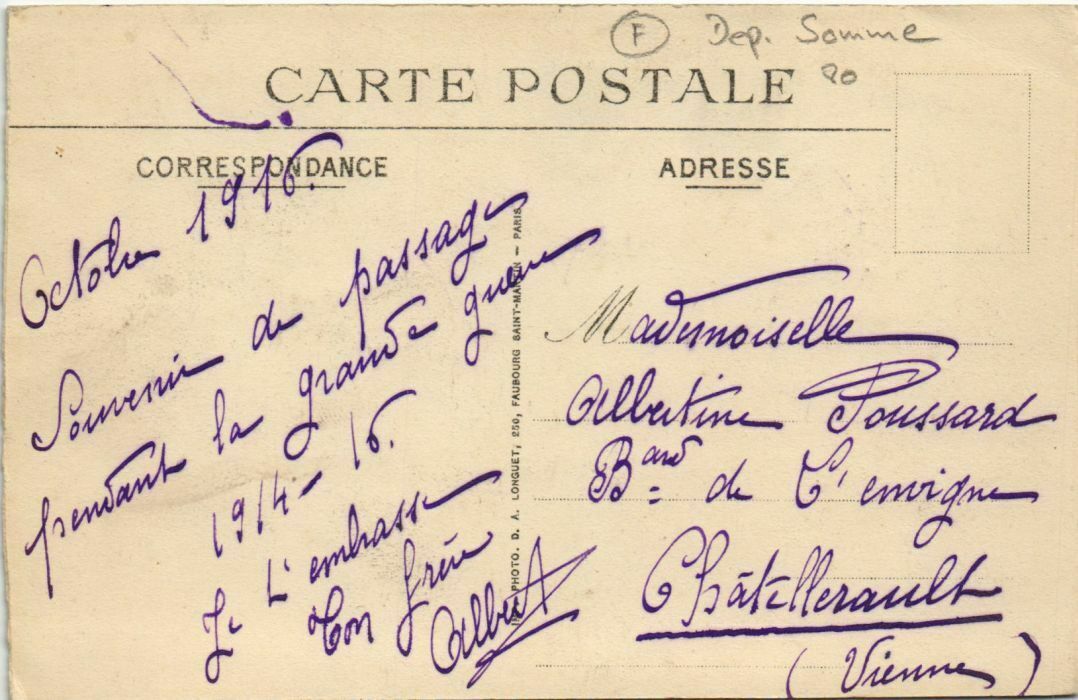 F Dep. Somme
80
CARTE POSTALE
CORRESPONDANCE
Octobre 1916.
Souvenir de passage
pendant la grande guerre
1914-16.
Je t'embrasse
Ton frère
Albert
IMP. PHOTO. D. A. LONGUET, 250, FAUBOURG SAINT-MARTIN — PARIS.
ADRESSE
Mademoiselle
Albertine Poussard
Bard de
Châtellerault
(Vienne)